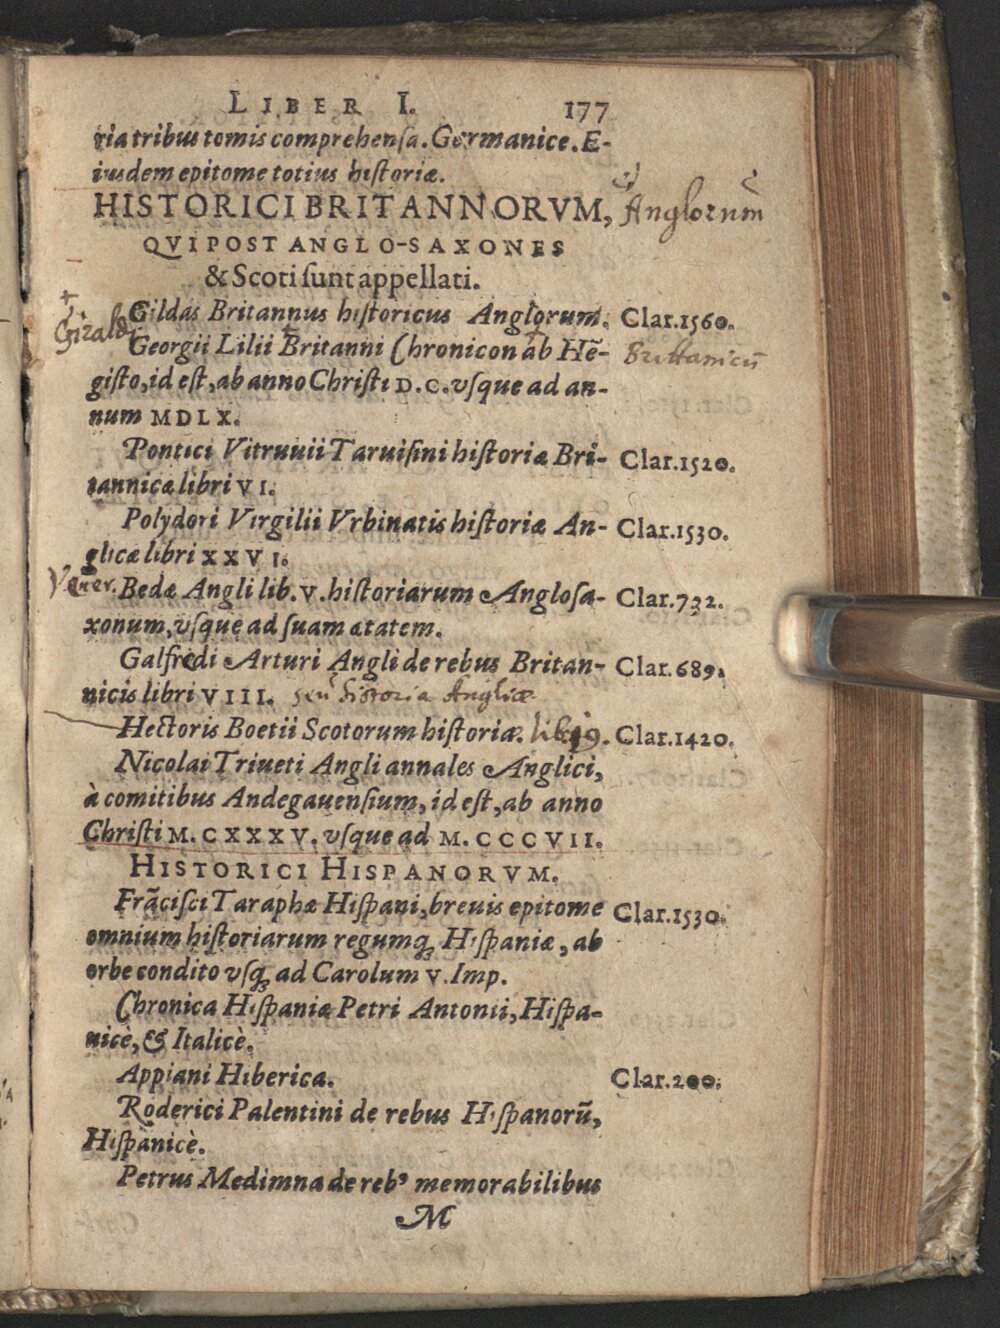 LIBER I. 177
ria tribus tomis comprehensa. Germanice. E-
iusdem epitome totius historiæ.
HISTORICI BRITANNORVM, Anglorum
QVI POST ANGLO-SAXONES
& Scoti sunt appellati.
Girald. Gildas Britannus historicus Anglorum. Clar.1560.
Georgii Lilii Britanni Chronicon ab Hē- Brittanicū
gisto, id est, ab anno Christi D.C. vsque ad an-
num MDLX.
Pontici Vitruuii Taruisini historiæ Bri- Clar.1520.
tannicæ libri VI.
Polydori Virgilii Vrbinatis historiæ An- Clar.1530.
glicæ libri XXVI.
Vener. Bedæ Angli lib. V. historiarum Anglosa- Clar.732.
xonum, vsque ad suam ætatem.
Galfredi Arturi Angli de rebus Britan- Clar.689.
nicis libri VIII. seu historia Angliæ
Hectoris Boetii Scotorum historiæ. lib. 19. Clar.1420.
Nicolai Triueti Angli annales Anglici,
à comitibus Andegauensium, id est, ab anno
Christi M.CXXXV. vsque ad M.CCCVII.
HISTORICI HISPANORVM.
Frācisci Taraphæ Hispani, breuis epitome Clar.1530.
omnium historiarum regumq; Hispaniæ, ab
orbe condito vsq; ad Carolum V. Imp.
Chronica Hispaniæ Petri Antonii, Hispa-
nicè, & Italicè.
Appiani Hiberica. Clar.200.
Roderici Palentini de rebus Hispanorū,
Hispànicè.
Petrus Medimna de reb⁹ memorabilibus
M